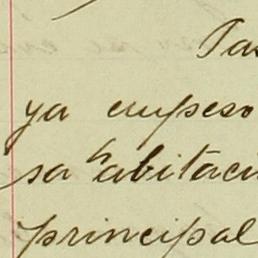 Pas
ya empeso
sa habitaci
principal